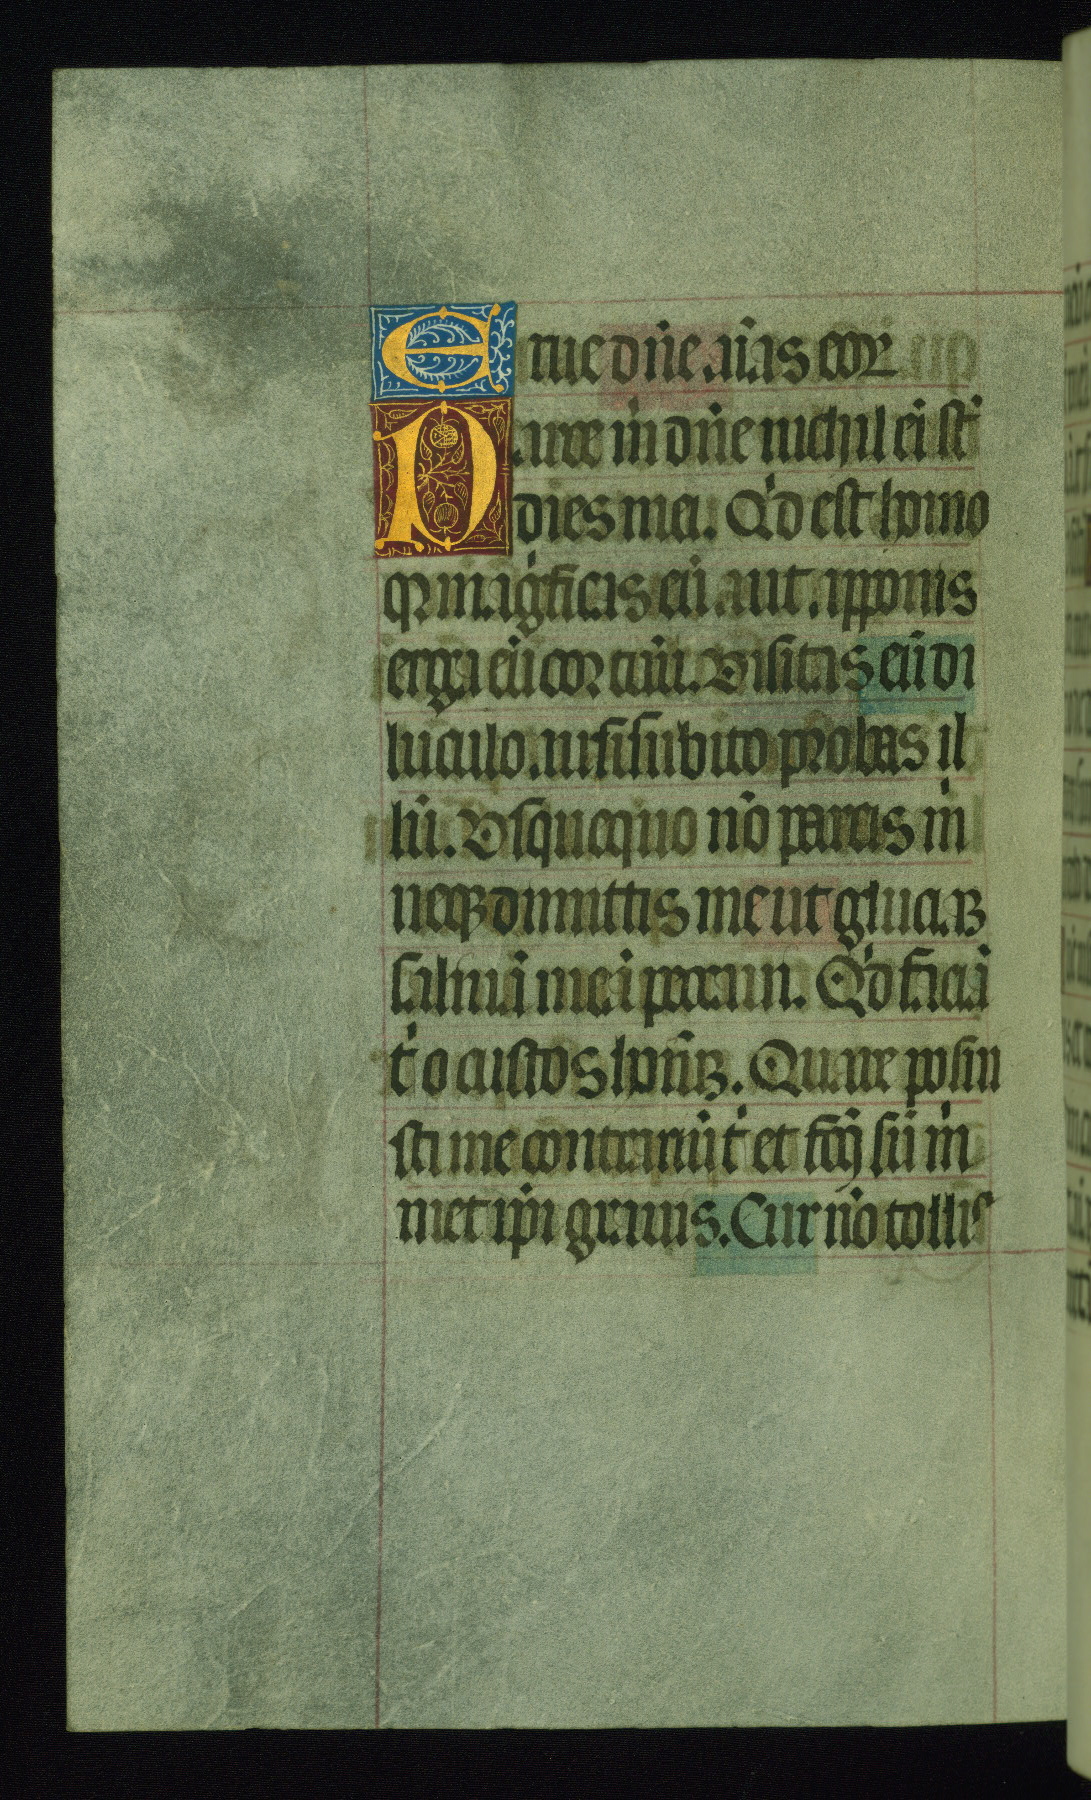 Erue dn̄e aīas eoꝝ
Parce m̄ dn̄e nichil ei st̄
dies mei. Qͥd est homo
qꝛ mag̅ficas eū aut appōis
erga eū cor tuū. Visitas eū di
luculo. ni si subito probas il
lū. Usquequo nō parcis m̄
neqꝫ dimittis me ut glucia
saliuā meā peccaui. Qͥd faciā
t̄ o custos hoīm. Quare posui
sti me contrariū t̄ et fc̄s sū m̄
met ipi grauis. Cur nō tollis